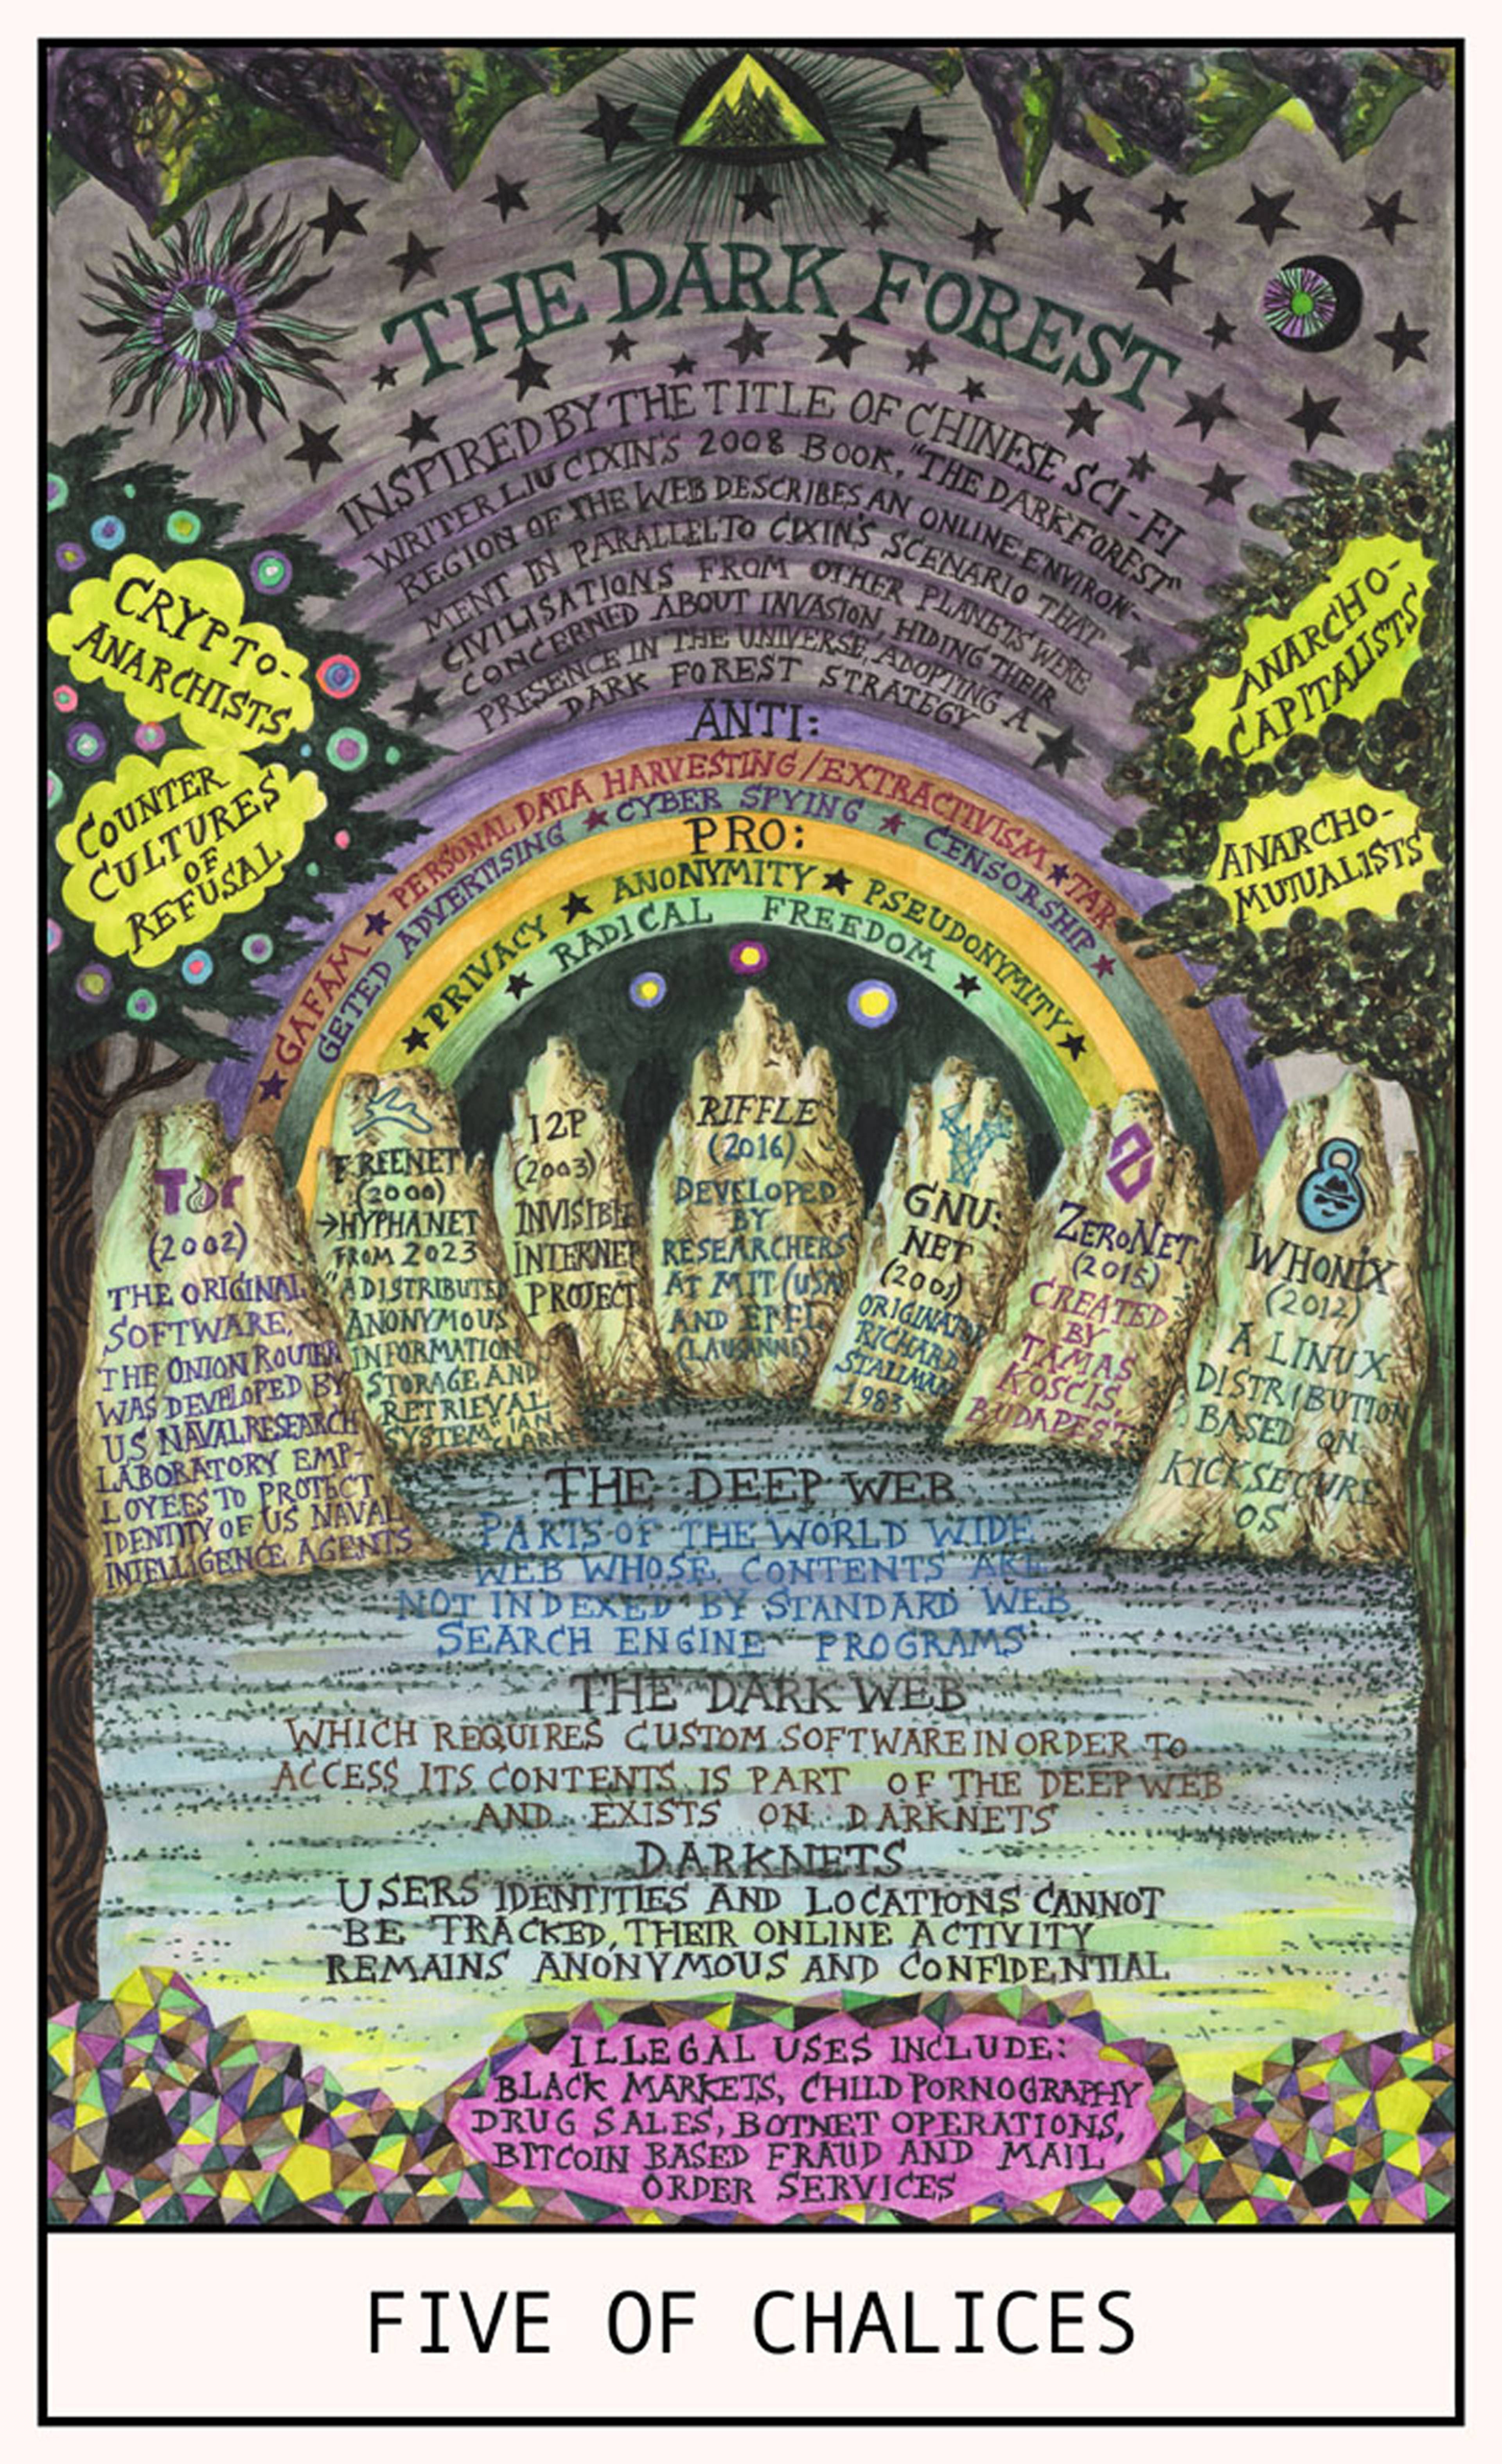 THE DARK FOREST
INSPIRED BY THE TITLE OF CHINESE SCI-FI
WRITER LIU CIXIN'S 2008 BOOK, "THE DARK FOREST"
REGION OF THE WEB DESCRIBES AN ONLINE ENVIRON-
MENT IN PARALLEL TO CIXIN'S SCENARIO THAT
CIVILISATIONS FROM OTHER PLANETS WERE
CONCERNED ABOUT INVASION, HIDING THEIR
PRESENCE IN THE UNIVERSE, ADOPTING A
DARK FOREST STRATEGY
CRYPTO-
ANARCHISTS
COUNTER
CULTURES
OF
REFUSAL
ANARCHO-
CAPITALISTS
ANARCHO-
MUTUALISTS
ANTI:
★ GAFAM ★ PERSONAL DATA HARVESTING/EXTRACTIVISM ★ TAR
GETED ADVERTISING ★ CYBER SPYING ★ CENSORSHIP ★
PRO:
★ PRIVACY ★ ANONYMITY ★ PSEUDONYMITY ★
★ RADICAL FREEDOM ★
Tor
(2002)
THE ORIGINAL
SOFTWARE,
THE ONION ROUTER
WAS DEVELOPED BY
US NAVAL RESEARCH
LABORATORY EMP-
LOYEES TO PROTECT
IDENTITY OF US NAVAL
INTELLIGENCE AGENTS
FREENET
(2000)
→HYPHANET
FROM 2023
"A DISTRIBUTED
ANONYMOUS
INFORMATION
STORAGE AND
RETRIEVAL
SYSTEM" IAN
CLARKE
I2P
(2003)
INVISIBLE
INTERNET
PROJECT
RIFFLE
(2016)
DEVELOPED
BY
RESEARCHERS
AT MIT (USA)
AND EPFL
(LAUSANNE)
GNU:
NET
(2001)
ORIGINATOR
RICHARD
STALLMAN
1983
ZERONET
(2015)
CREATED
BY
TAMAS
KOSCIS,
BUDAPEST
WHONIX
(2012)
A LINUX
DISTRIBUTION
BASED ON
KICKSECURE
OS
THE DEEP WEB
PARTS OF THE WORLD WIDE
WEB WHOSE CONTENTS ARE
NOT INDEXED BY STANDARD WEB
SEARCH ENGINE PROGRAMS
THE DARK WEB
WHICH REQUIRES CUSTOM SOFTWARE IN ORDER TO
ACCESS ITS CONTENTS IS PART OF THE DEEP WEB
AND EXISTS ON DARKNETS
DARKNETS
USERS IDENTITIES AND LOCATIONS CANNOT
BE TRACKED, THEIR ONLINE ACTIVITY
REMAINS ANONYMOUS AND CONFIDENTIAL
ILLEGAL USES INCLUDE:
BLACK MARKETS, CHILD PORNOGRAPHY
DRUG SALES, BOTNET OPERATIONS,
BITCOIN BASED FRAUD AND MAIL
ORDER SERVICES
FIVE OF CHALICES